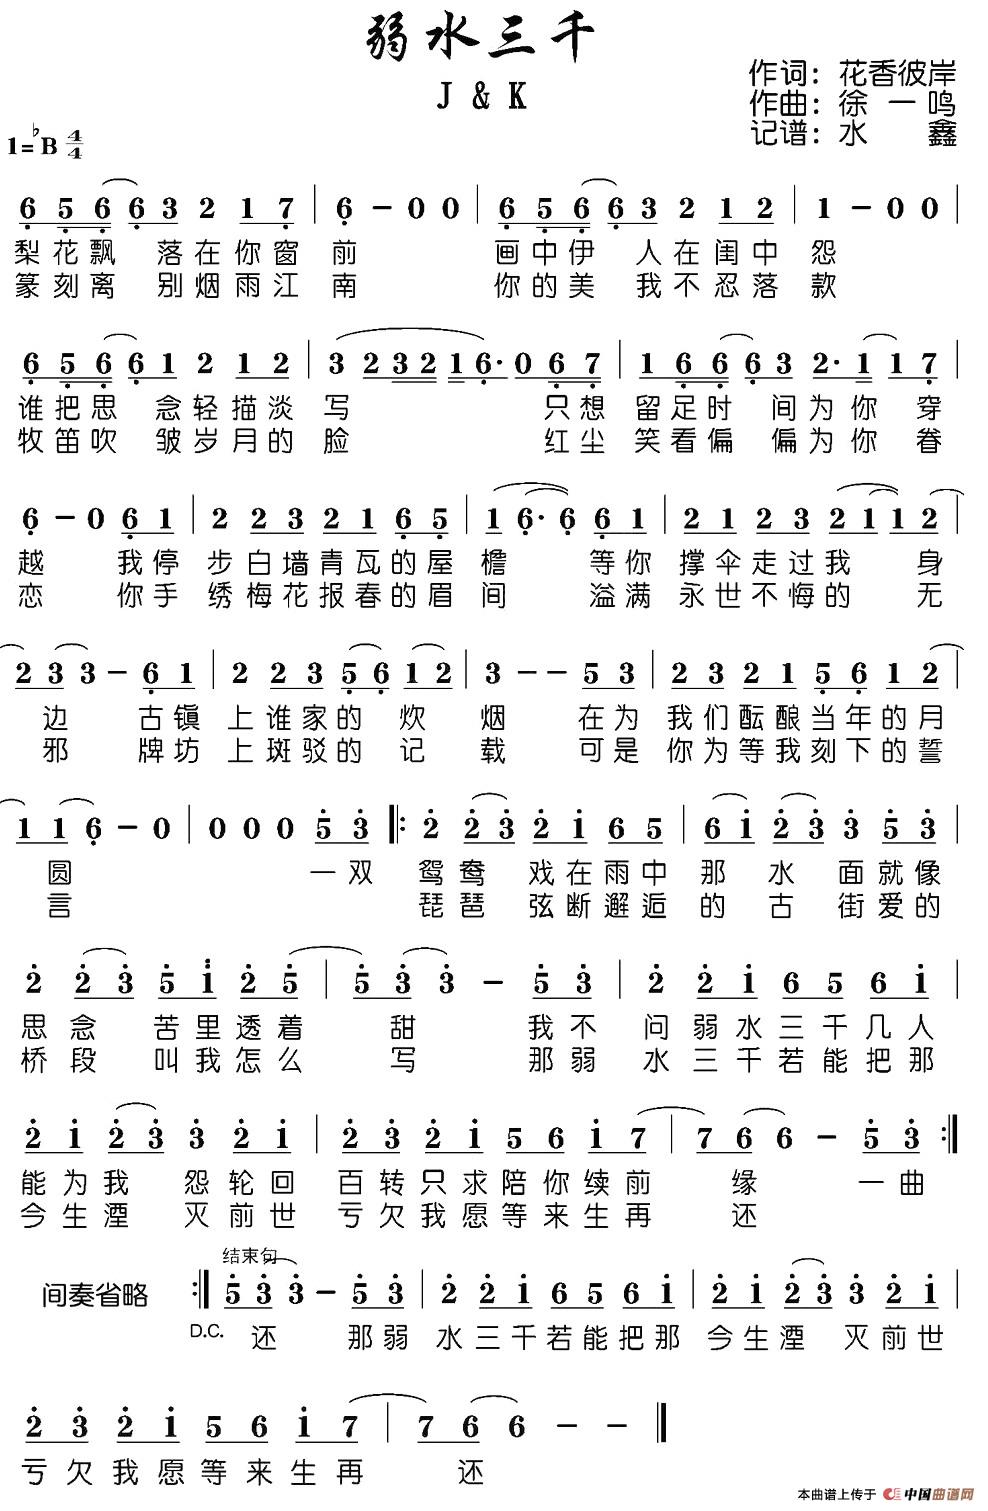 弱水三千
J & K
作词：花香彼岸
作曲：徐一鸣
记谱：水 鑫
1=♭B 4/4
6 5 6 6 3 2 1 7 | 6 - 0 0 | 6 5 6 6 3 2 1 2 | 1 - 0 0 |
梨花飘 落在你窗 前 画中伊 人在闺中 怨
篆刻离 别烟雨江 南 你的美 我不忍落 款
6 5 6 6 1 2 1 2 | 3 2 3 2 1 6· 0 6 7 | 1 6 6 6 3 2· 1 1 7 |
谁把思 念轻描淡 写 只想 留足时 间为你 穿
牧笛吹 皱岁月的 脸 红尘 笑看偏 偏为你 眷
6 - 0 6 1 | 2 2 3 2 1 6 5 | 1 6· 6 6 1 | 2 1 2 3 2 1 1 2 |
越 我停 步白墙青瓦的屋 檐 等你 撑伞走过我 身
恋 你手 绣梅花报春的眉 间 溢满 永世不悔的 无
2 3 3 - 6 1 | 2 2 3 5 6 1 2 | 3 - - 5 3 | 2 3 2 1 5 6 1 2 |
边 古镇 上谁家的 炊 烟 在为 我们酝酿当年的月
邪 牌坊 上斑驳的 记 载 可是 你为等我刻下的誓
1 1 6 - 0 | 0 0 0 5 3 |: 2 2 3 2 1 6 5 | 6 1 2 3 3 5 3 |
圆 一双 鸳鸯 戏在雨中 那 水 面就像
言 琵琶 弦断邂逅 的 古 街爱的
2 2 3 5 1 2 5 | 5 3 3 - 5 3 | 2 2 1 6 5 6 1 |
思念 苦里透着 甜 我不 问弱水三千几人
桥段 叫我怎么 写 那弱 水三千若能把那
2 1 2 3 3 2 1 | 2 3 2 1 5 6 1 7 | 7 6 6 - 5 3 :|
能为我 怨轮回 百转只求陪你续前 缘 一曲
今生湮 灭前世 亏欠我愿等来生再 还
结束句
间奏省略 :| 5 3 3 - 5 3 | 2 2 1 6 5 6 1 | 2 1 2 3 3 2 1 |
D.C. 还 那弱 水三千若能把那 今生湮 灭前世
2 3 2 1 5 6 1 7 | 7 6 6 - - |
亏欠我愿等来生再 还
本曲谱上传于 中国曲谱网